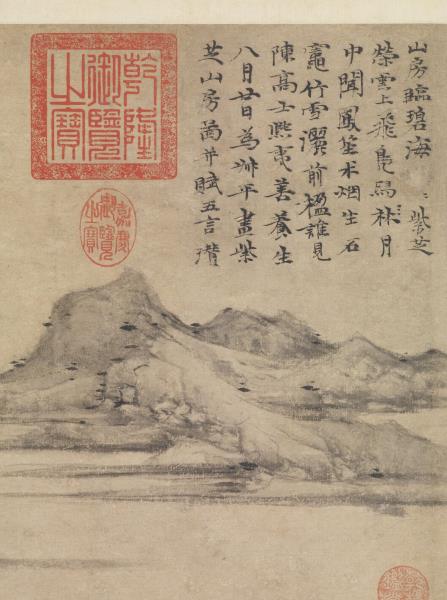 山房臨碧海々紫芝
榮雲上飛鳧舄林月
中聞鳳笙朮烟生石
竈竹雪灑前楹誰見
陳高士熙夷善養生
八月廿日為叔平畫紫
芝山房啚并賦五言瓚
乾隆御覽之寶
嘉慶御覽之寶